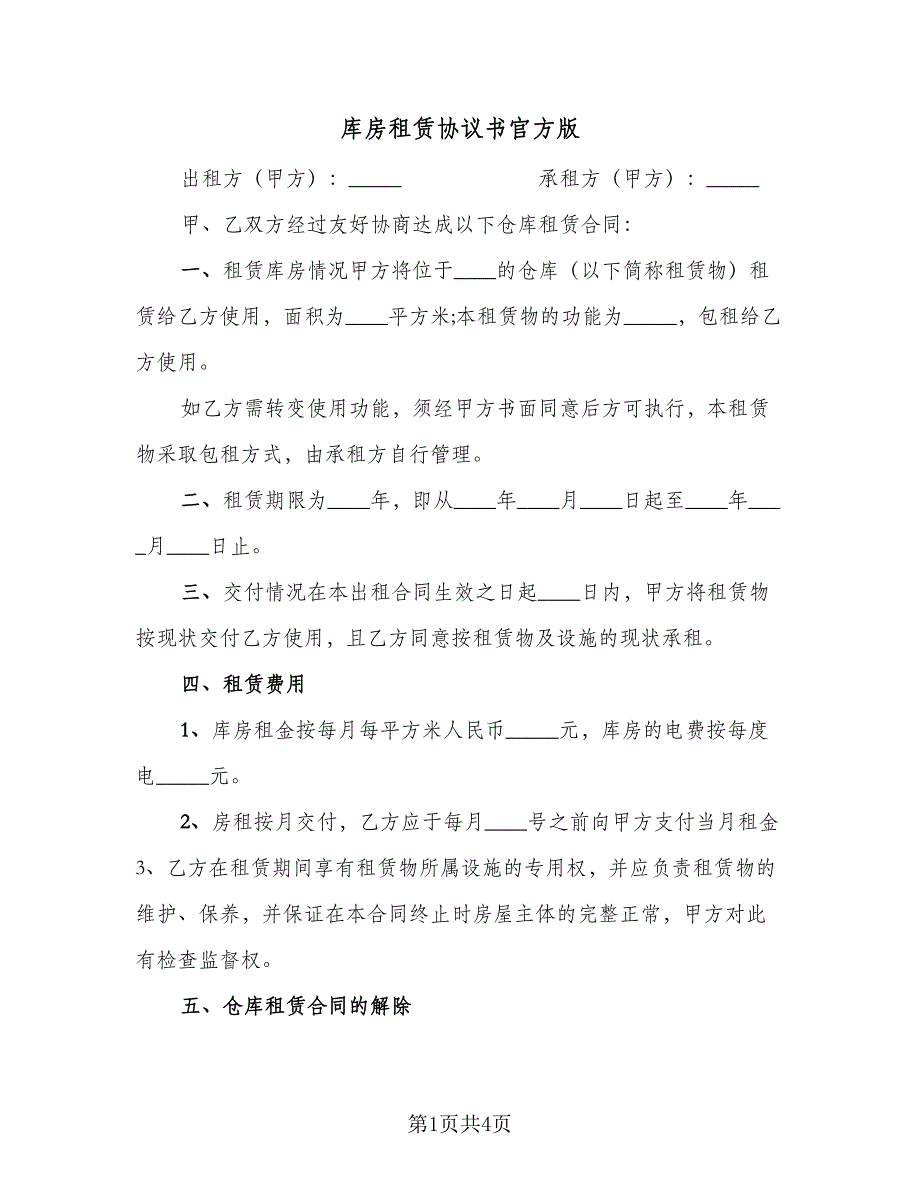 库房租赁协议书官方版
出租方（甲方）：_____ 承租方（甲方）：_____
甲、乙双方经过友好协商达成以下仓库租赁合同：
一、租赁库房情况甲方将位于____的仓库（以下简称租赁物）租
赁给乙方使用，面积为____平方米;本租赁物的功能为_____，包租给乙
方使用。
如乙方需转变使用功能，须经甲方书面同意后方可执行，本租赁
物采取包租方式，由承租方自行管理。
二、租赁期限为____年，即从____年____月____日起至____年___
_月____日止。
三、交付情况在本出租合同生效之日起____日内，甲方将租赁物
按现状交付乙方使用，且乙方同意按租赁物及设施的现状承租。
四、租赁费用
1、库房租金按每月每平方米人民币_____元，库房的电费按每度
电_____元。
2、房租按月交付，乙方应于每月____号之前向甲方支付当月租金
3、乙方在租赁期间享有租赁物所属设施的专用权，并应负责租赁物的
维护、保养，并保证在本合同终止时房屋主体的完整正常，甲方对此
有检查监督权。
五、仓库租赁合同的解除
第1页共4页